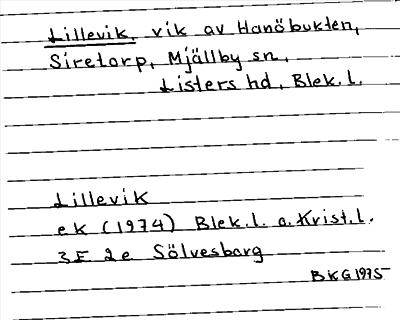 Lillevik, vik av Hanöbukten,
Siretorp, Mjällby sn,
Listers hd, Blek. l.
Lillevik
ek (1974) Blek. l. o. Krist. l.
3E 2e Sölvesborg
BKG 1975